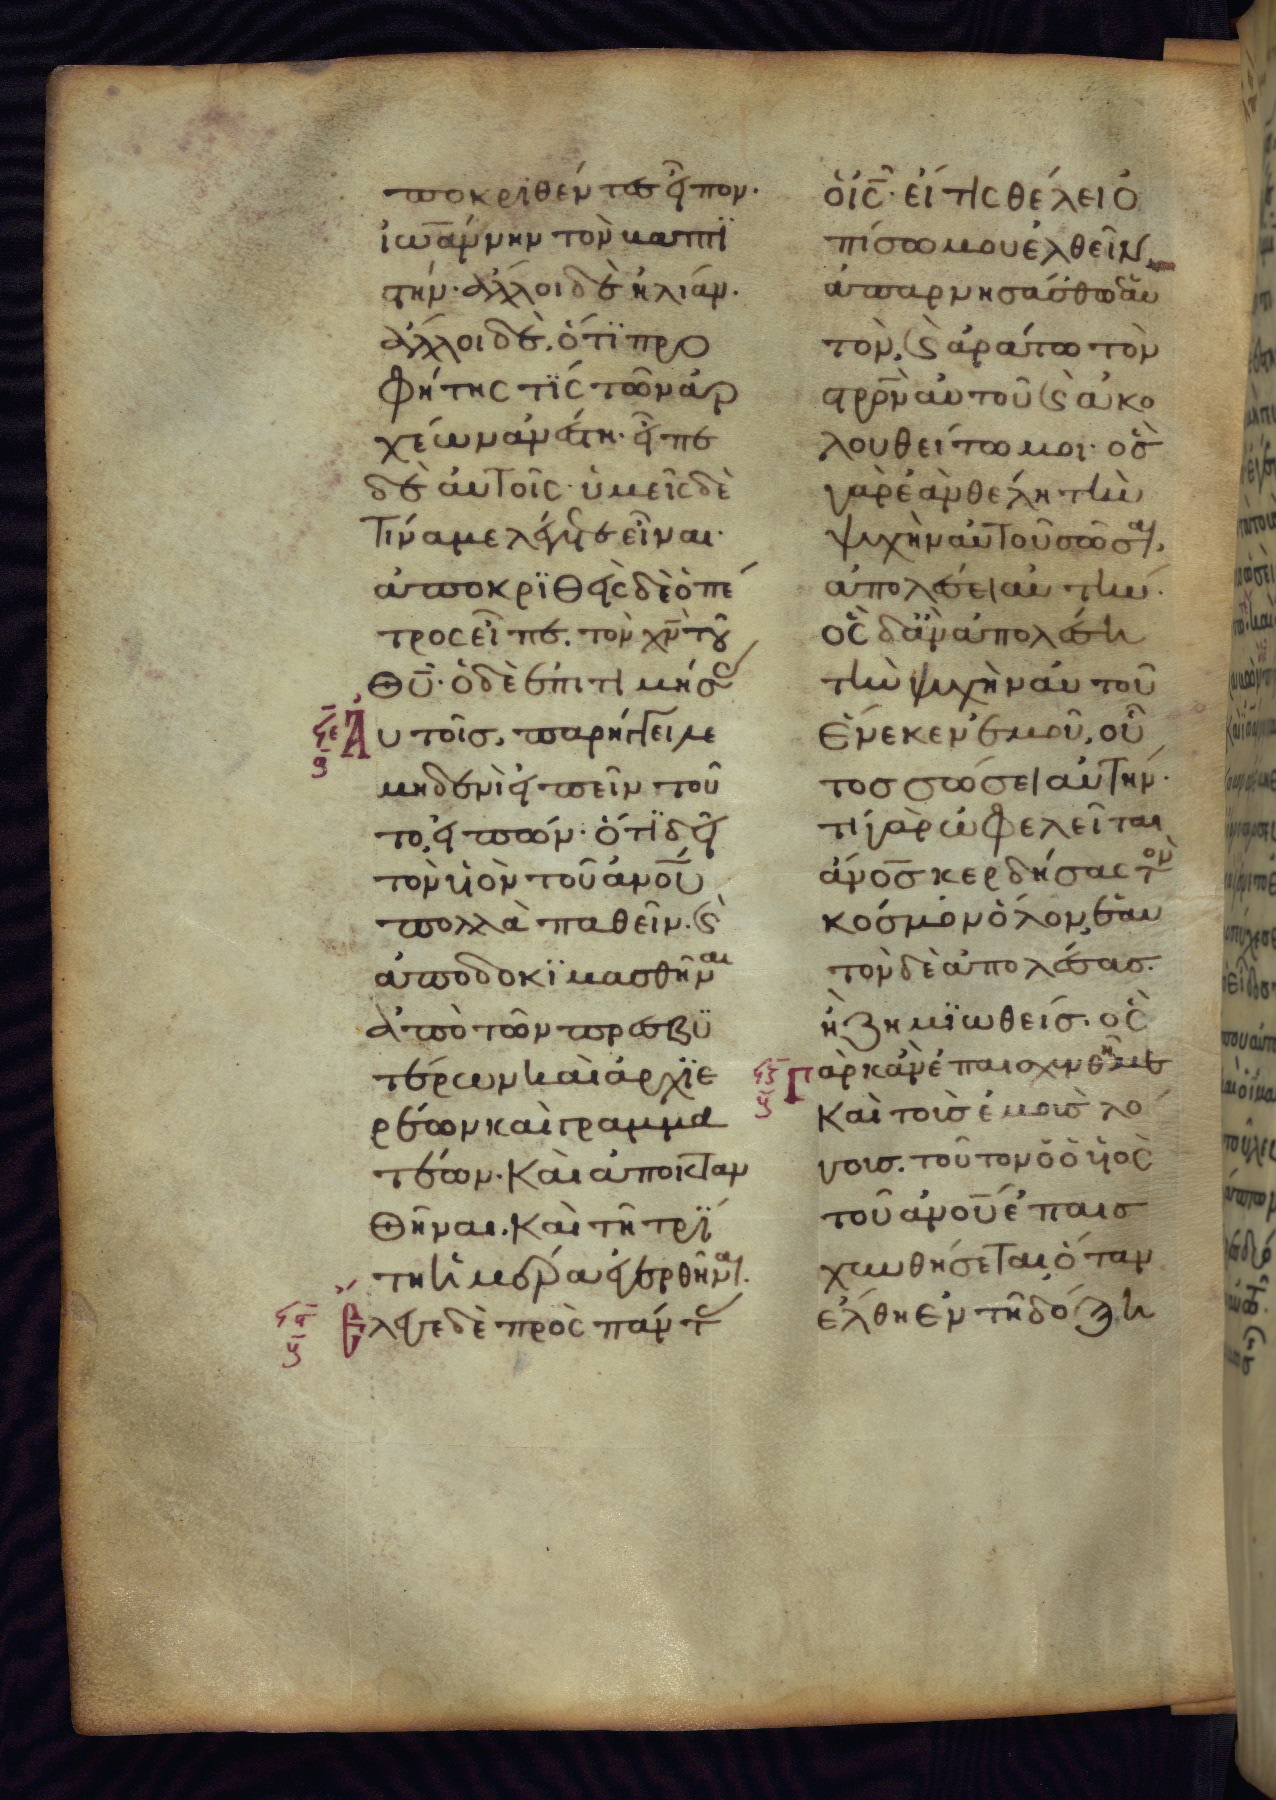 ποκριθέντες εἶπον·
ἰωάννην τὸν βαπτϊ
στήν· ἄλλοι δὲ ἠλίαν·
ἄλλοι δὲ, ὅτϊ προ
φήτης τϊς τῶν ἀρ
χέων ἀνέστη· εἶπε
δὲ αὐτοῖς· ὑμεῖς δὲ
τίνα με λέγετε εἶναι·
ἀποκρϊθεὶς δὲ ὁ πέ
τρος εἶπε. τὸν χ̅ν̅ τοῦ
θ̅υ̅· ὁ δὲ ἐπιτιμήσας
ϟε Αὐτοῖς, παρήγγειλε
θ
μηδενὶ εἰπεῖν τοῦ
το, εἰπών· ὅτϊ δεῖ
τὸν ὑἱὸν τοῦ ἀν̅ο̅υ̅
πολλὰ παθεῖν. ϗ
ἀποδοκϊμασθῆναι
ἀπὸ τῶν πρεσβϋ
τέρων καὶ ἀρχϊε
ρέων καὶ γραμμα
τέων. Καὶ ἀποκταν
θῆναι. Καὶ τῇ τρϊ
τῃ ἡμέρᾳ ἐγερθῆναι.
Ἔλεγε δὲ πρὸς πάντας
ὁ ι̅ς̅· εἴ τις θέλει ὀ
πίσω μου ἐλθεῖν,
ἀπαρνησάσθω ἑαυ
τὸν, ϗ ἀράτω τὸν
στρ̅ν̅ αὐτοῦ ϗ ἀκο
λουθείτω μοι· ὃς
γὰρ ἐὰν θέλῃ τὴν
ψυχὴν αὐτοῦ σῶσαι,
ἀπολέσει αὐτήν·
ὃς δ ἂν ἀπολέσῃ
τὴν ψυχὴν αὐτοῦ
ἕνεκεν ἐμοῦ, οὗ
τος σώσει αὐτήν·
τί γὰρ ὠφελεῖται
ἄν̅ο̅ς̅ κερδήσας τὸν
κόσμον ὅλον, ἑαυ
τὸν δὲ ἀπολέσας.
ἢ ζημϊωθείς. ὃς
Γὰρ κἂν ἐπαισχυνθῇ με
Καὶ τοὺς ἐμοὺς λό
γους. τοῦτον ὁ ὑἱὸς
τοῦ ἀν̅ο̅υ̅ ἐπαισ
χυνθήσεται, ὅταν
ἔλθῃ ἐν τῇ δόξῃ